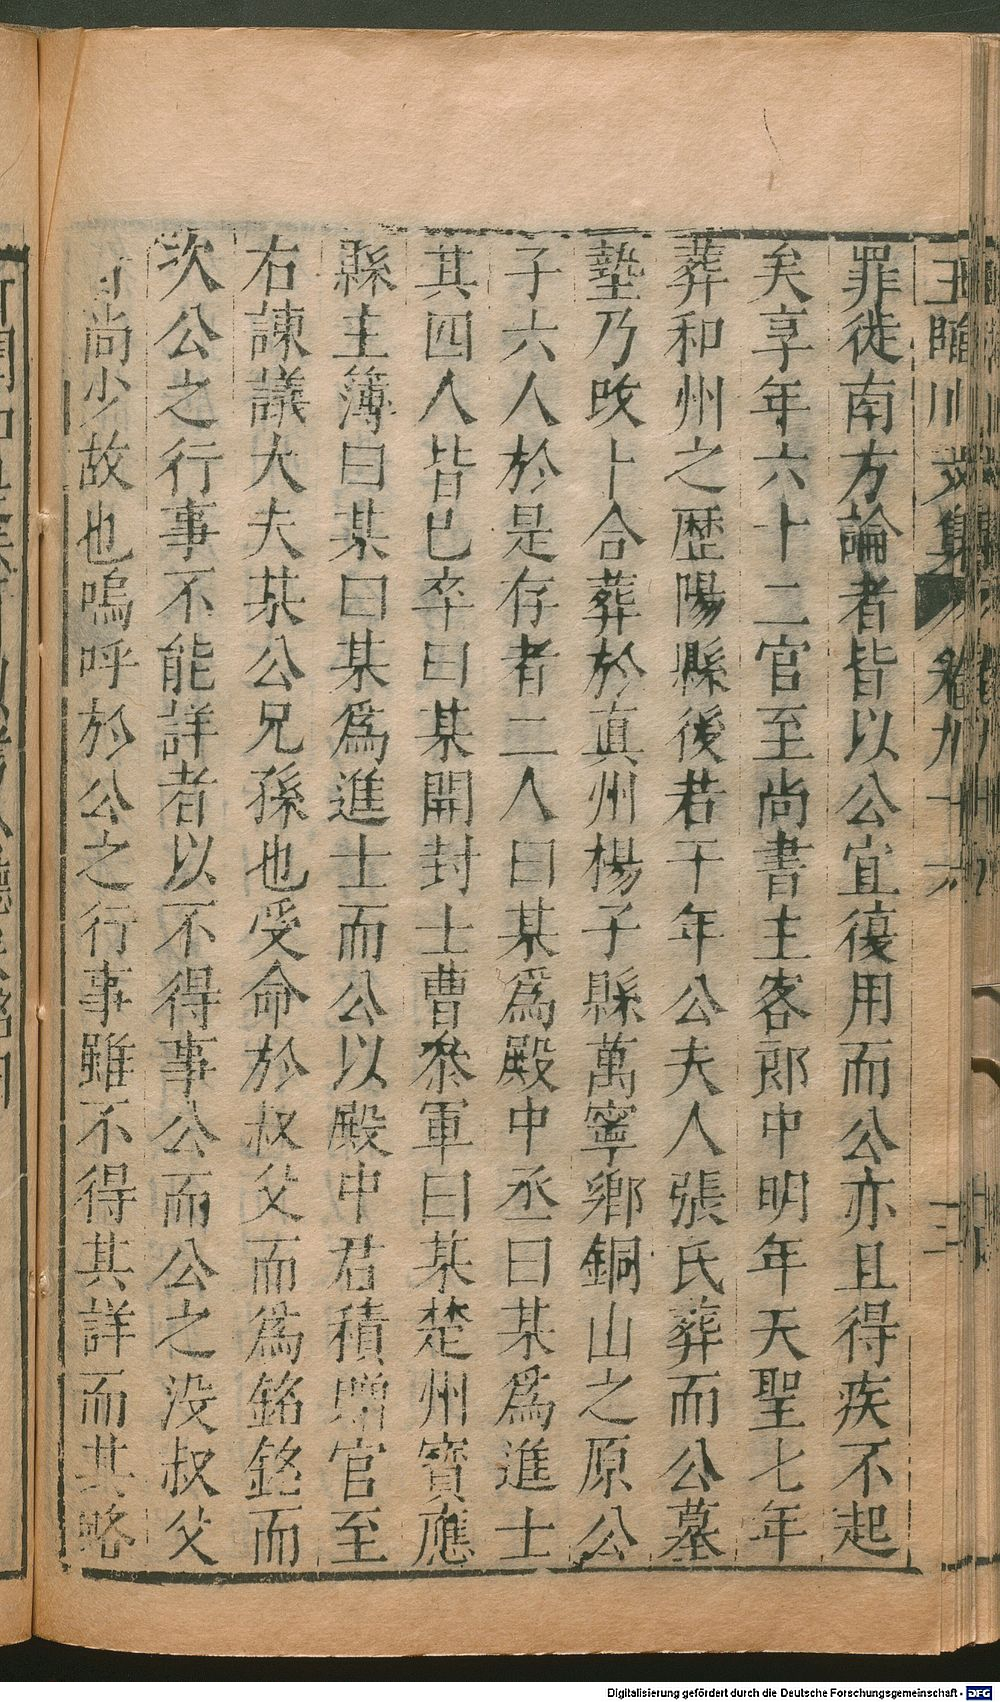 王臨川文集 卷九十六 三
罪徙南方論者皆以公宜復用而公亦且得疾不起
矣享年六十二官至尚書主客郎中明年天聖七年
葬和州之歷陽縣後若干年公夫人張氏葬而公墓
墊乃改卜合葬於真州楊子縣萬寧鄉銅山之原公
子六人於是存者二人曰某爲殿中丞曰某爲進士
其四人皆已卒曰某開封士曹叅軍曰某楚州寶應
縣主簿曰某曰某爲進士而公以殿中君積贈官至
右諫議大夫某公兄孫也受命於叔父而爲銘銘而
次公之行事不能詳者以不得事公而公之没叔父
尚少故也嗚呼於公之行事雖不得其詳而其略
Digitalisierung gefördert durch die Deutsche Forschungsgemeinschaft - DFG